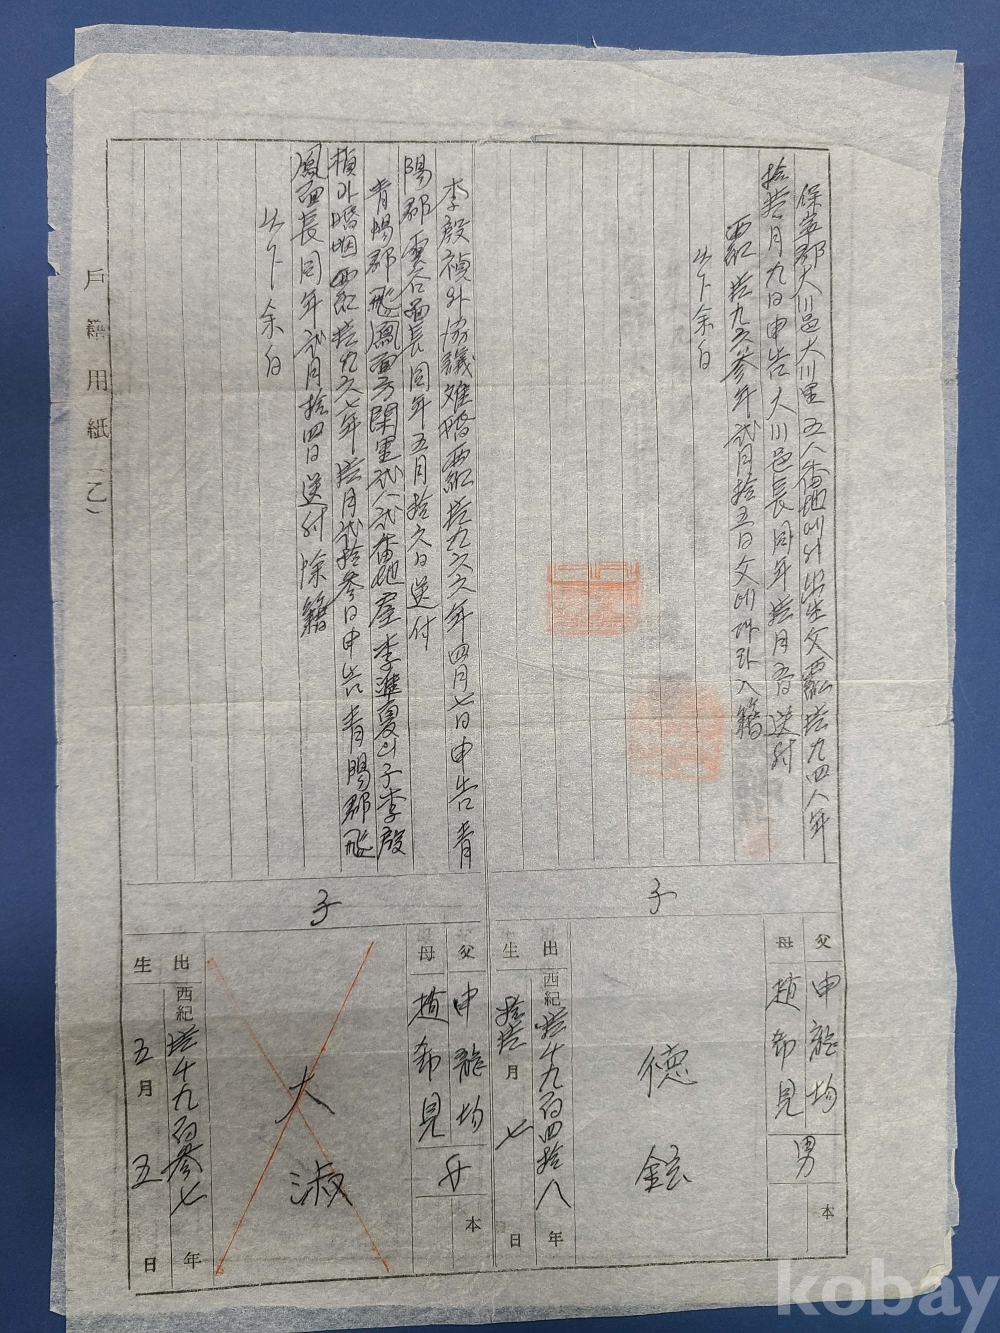 保寧郡大川邑大川里五八番地에서出生父西紀壹九四八年
拾壹月九日申告大川邑長同年拾壹月 日送付
西紀壹九六參年貳月拾五日父에따라入籍
以下余白
父 申龍均
母 趙希見
男
本
子
德鉉
出生 西紀壹千九百四拾八年
拾壹月七日
李殷禎外協議離婚西紀壹九六六年四月七日申告青
陽郡雲谷面長同年五月拾六日送付
青陽郡飛鳳面 閑里貳八貳番地戶 李進夏의子李殷
禎外婚姻西紀壹九六七年壹月貳拾參日申告青陽郡飛
鳳面長同年貳月拾四日送付除籍
以下余白
父 申龍均
母 趙希見
女
本
子
大淑
出生 西紀壹千九百參七年
五月五日
戶籍用紙(乙)
kobay